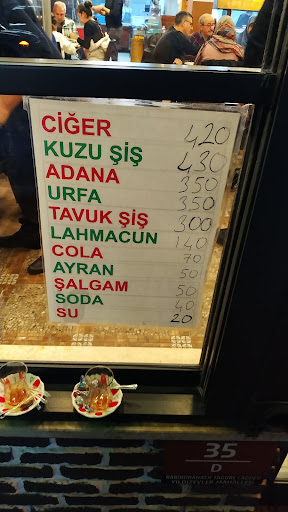 CİĞER 420
KUZU ŞİŞ 430
ADANA 350
URFA 350
TAVUK ŞİŞ 300
LAHMACUN 140
COLA 70
AYRAN 50
ŞALGAM 50
SODA 40
SU 20
35
D